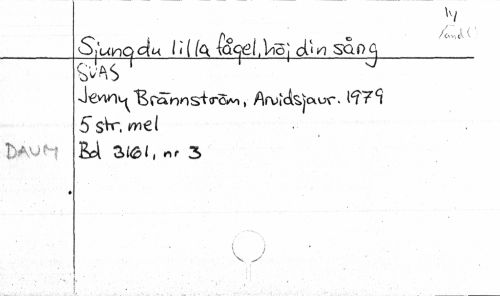 ly
Sjung du lilla fågel, höj din sång
SVAS
Jenny Brännström, Arvidsjaur. 1979
5 str. mel
DAUM Bd 3161, nr 3